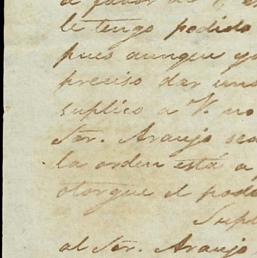 a favor de
le tengo pedido
pues aunque yo
preciso dar una
suplico a V. no
Sor. Araujo sea
la orden está a
otorgue el pode
Supl
al Sor. Araujo